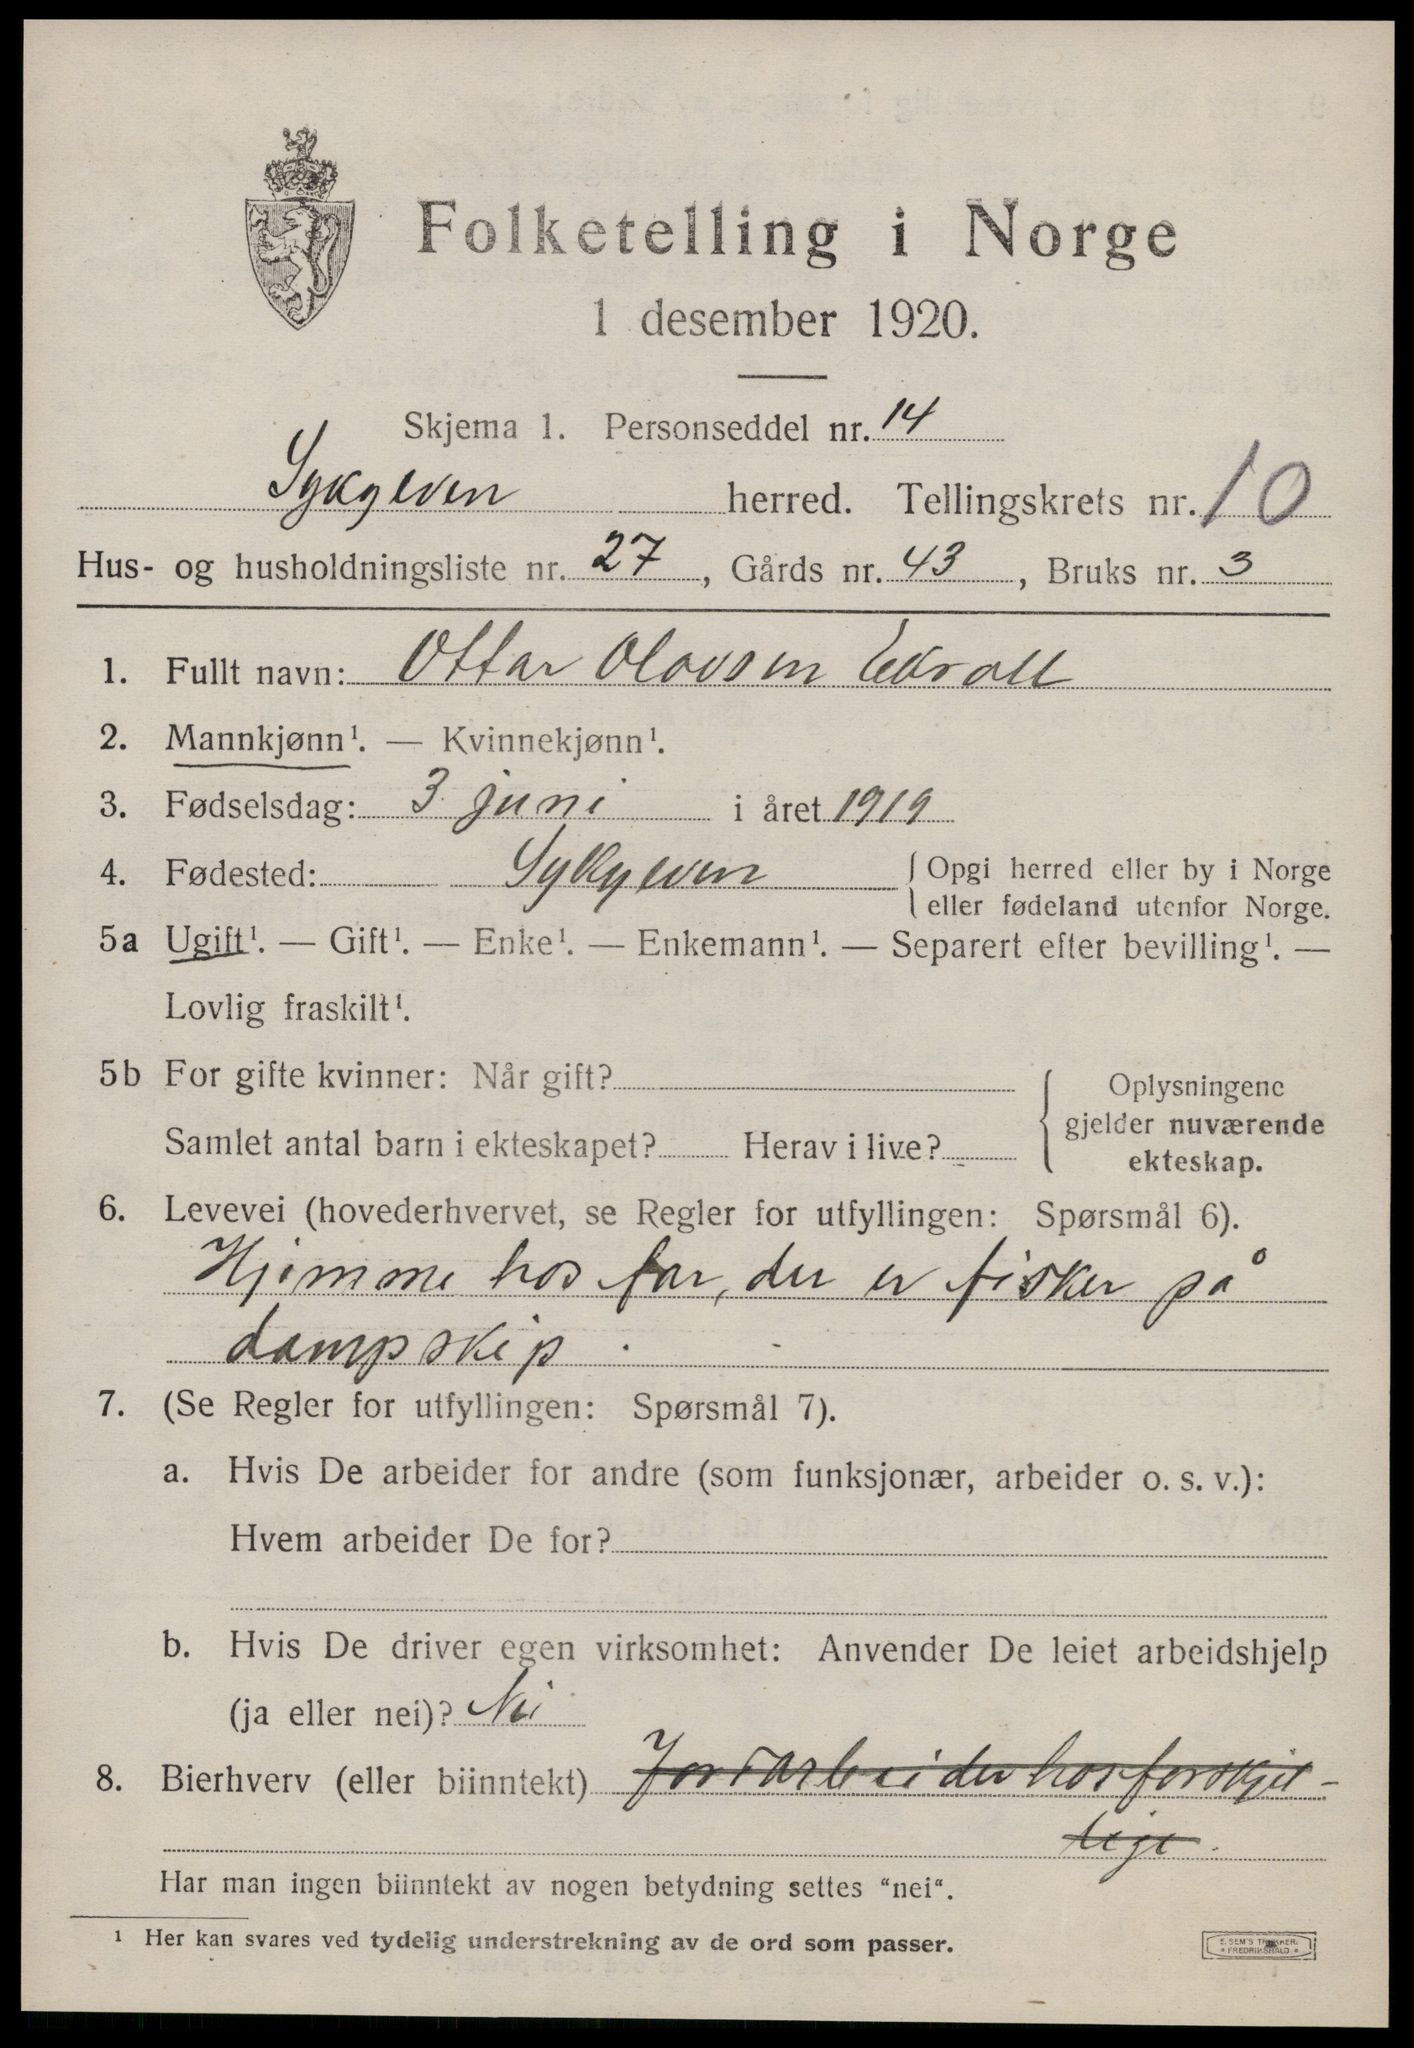 Folketelling i Norge
1 desember 1920.
Skjema 1. Personseddel nr. 14
Sykylven herred. Tellingskrets nr. 10
Hus- og husholdningsliste nr. 27, Gårds nr. 43, Bruks nr. 3
1. Fullt navn: Ottar Olavsen Ekroll
2. Mannkjønn¹. — Kvinnekjønn¹.
3. Fødselsdag: 3 juni i året 1919
4. Fødested: Sykylven { Opgi herred eller by i Norge
eller fødeland utenfor Norge.
5a Ugift¹. — Gift¹. — Enke¹. — Enkemann¹. — Separert efter bevilling¹. —
Lovlig fraskilt¹.
5b For gifte kvinner: Når gift?
Samlet antal barn i ekteskapet? Herav i live?
{ Oplysningene
gjelder nuværende
ekteskap.
6. Levevei (hovederhvervet, se Regler for utfyllingen: Spørsmål 6).
Hjemme hos far, der er fisker på
dampskip.
7. (Se Regler for utfyllingen: Spørsmål 7).
a. Hvis De arbeider for andre (som funksjonær, arbeider o. s. v.):
Hvem arbeider De for?
b. Hvis De driver egen virksomhet: Anvender De leiet arbeidshjelp
(ja eller nei)? Nei
8. Bierhverv (eller biinntekt) Jordarbeider hos forskjel-
lige.
Har man ingen biinntekt av nogen betydning settes “nei“.
¹ Her kan svares ved tydelig understrekning av de ord som passer.
E. SEM'S TRYKKERI
FREDRIKSHALD